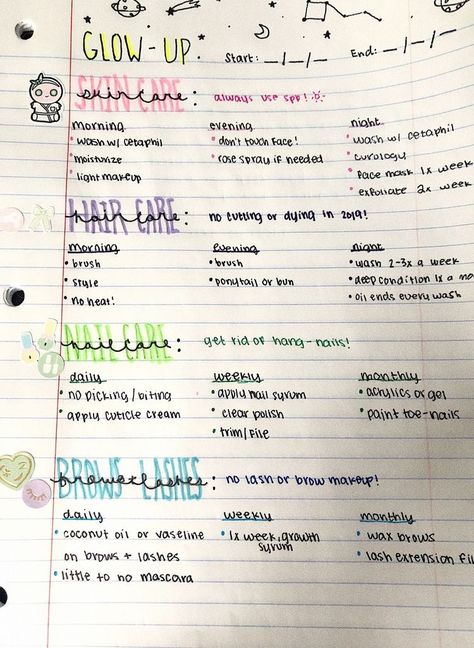 GLOW-UP Start: _/_/_ End: _/_/_
SKIN CARE skin care: always use spf!
morning evening night
• wash w/ cetaphil • don't touch face! • wash w/ cetaphil
• moisturize • rose spray if needed • curology
• light makeup • face mask 1x week
• exfoliate 2x week
HAIR CARE hair care: no cutting or dying in 2019!
morning evening night
• brush • brush • wash 2-3x a week
• style • ponytail or bun • deep condition 1x a mo
• no heat! • oil ends every wash
NAIL CARE nail care: get rid of hang-nails!
daily weekly monthly
• no picking/biting • apply nail syrum • acrylics or gel
• apply cuticle cream • clear polish • paint toe-nails
• trim/file
BROWS+LASHES brows+lashes: no lash or brow makeup!
daily weekly monthly
• coconut oil or vaseline • 1x week, growth • wax brows
on brows + lashes syrum • lash extension fil
• little to no mascara